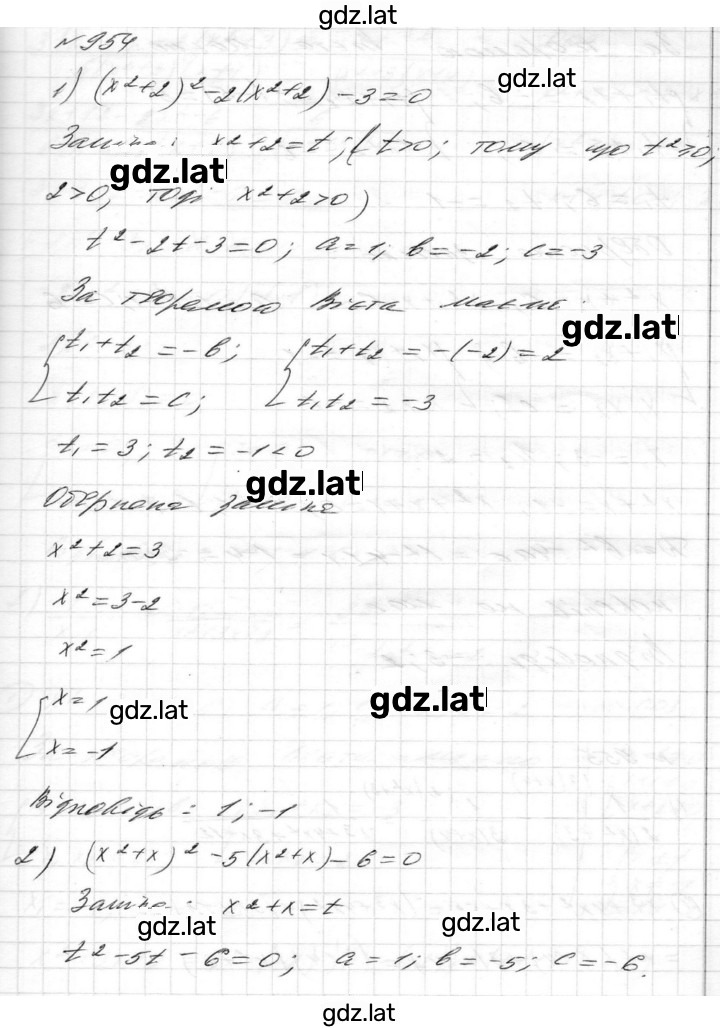 gdz.lat
№954
gdz.lat
1) (x²+2)²-2(x²+2)-3=0
Заміна: x²+2=t; (t>0; тому що t²≥0;
gdz.lat
2>0, тоді x²+2>0)
t²-2t-3=0; a=1; b=-2; c=-3
За теоремою Вієта маємо:
gdz.lat
{t₁+t₂=-b; {t₁+t₂=-(-2)=2
t₁t₂=c; t₁t₂=-3
t₁=3; t₂=-1<0
gdz.lat
Обернена заміна
x²+2=3
x²=3-2
x²=1
{x=1
gdz.lat gdz.lat
x=-1
Відповідь: 1; -1
2) (x²+x)²-5(x²+x)-6=0
Заміна: x²+x=t
gdz.lat gdz.lat
t²-5t-6=0; a=1; b=-5; c=-6.
gdz.lat